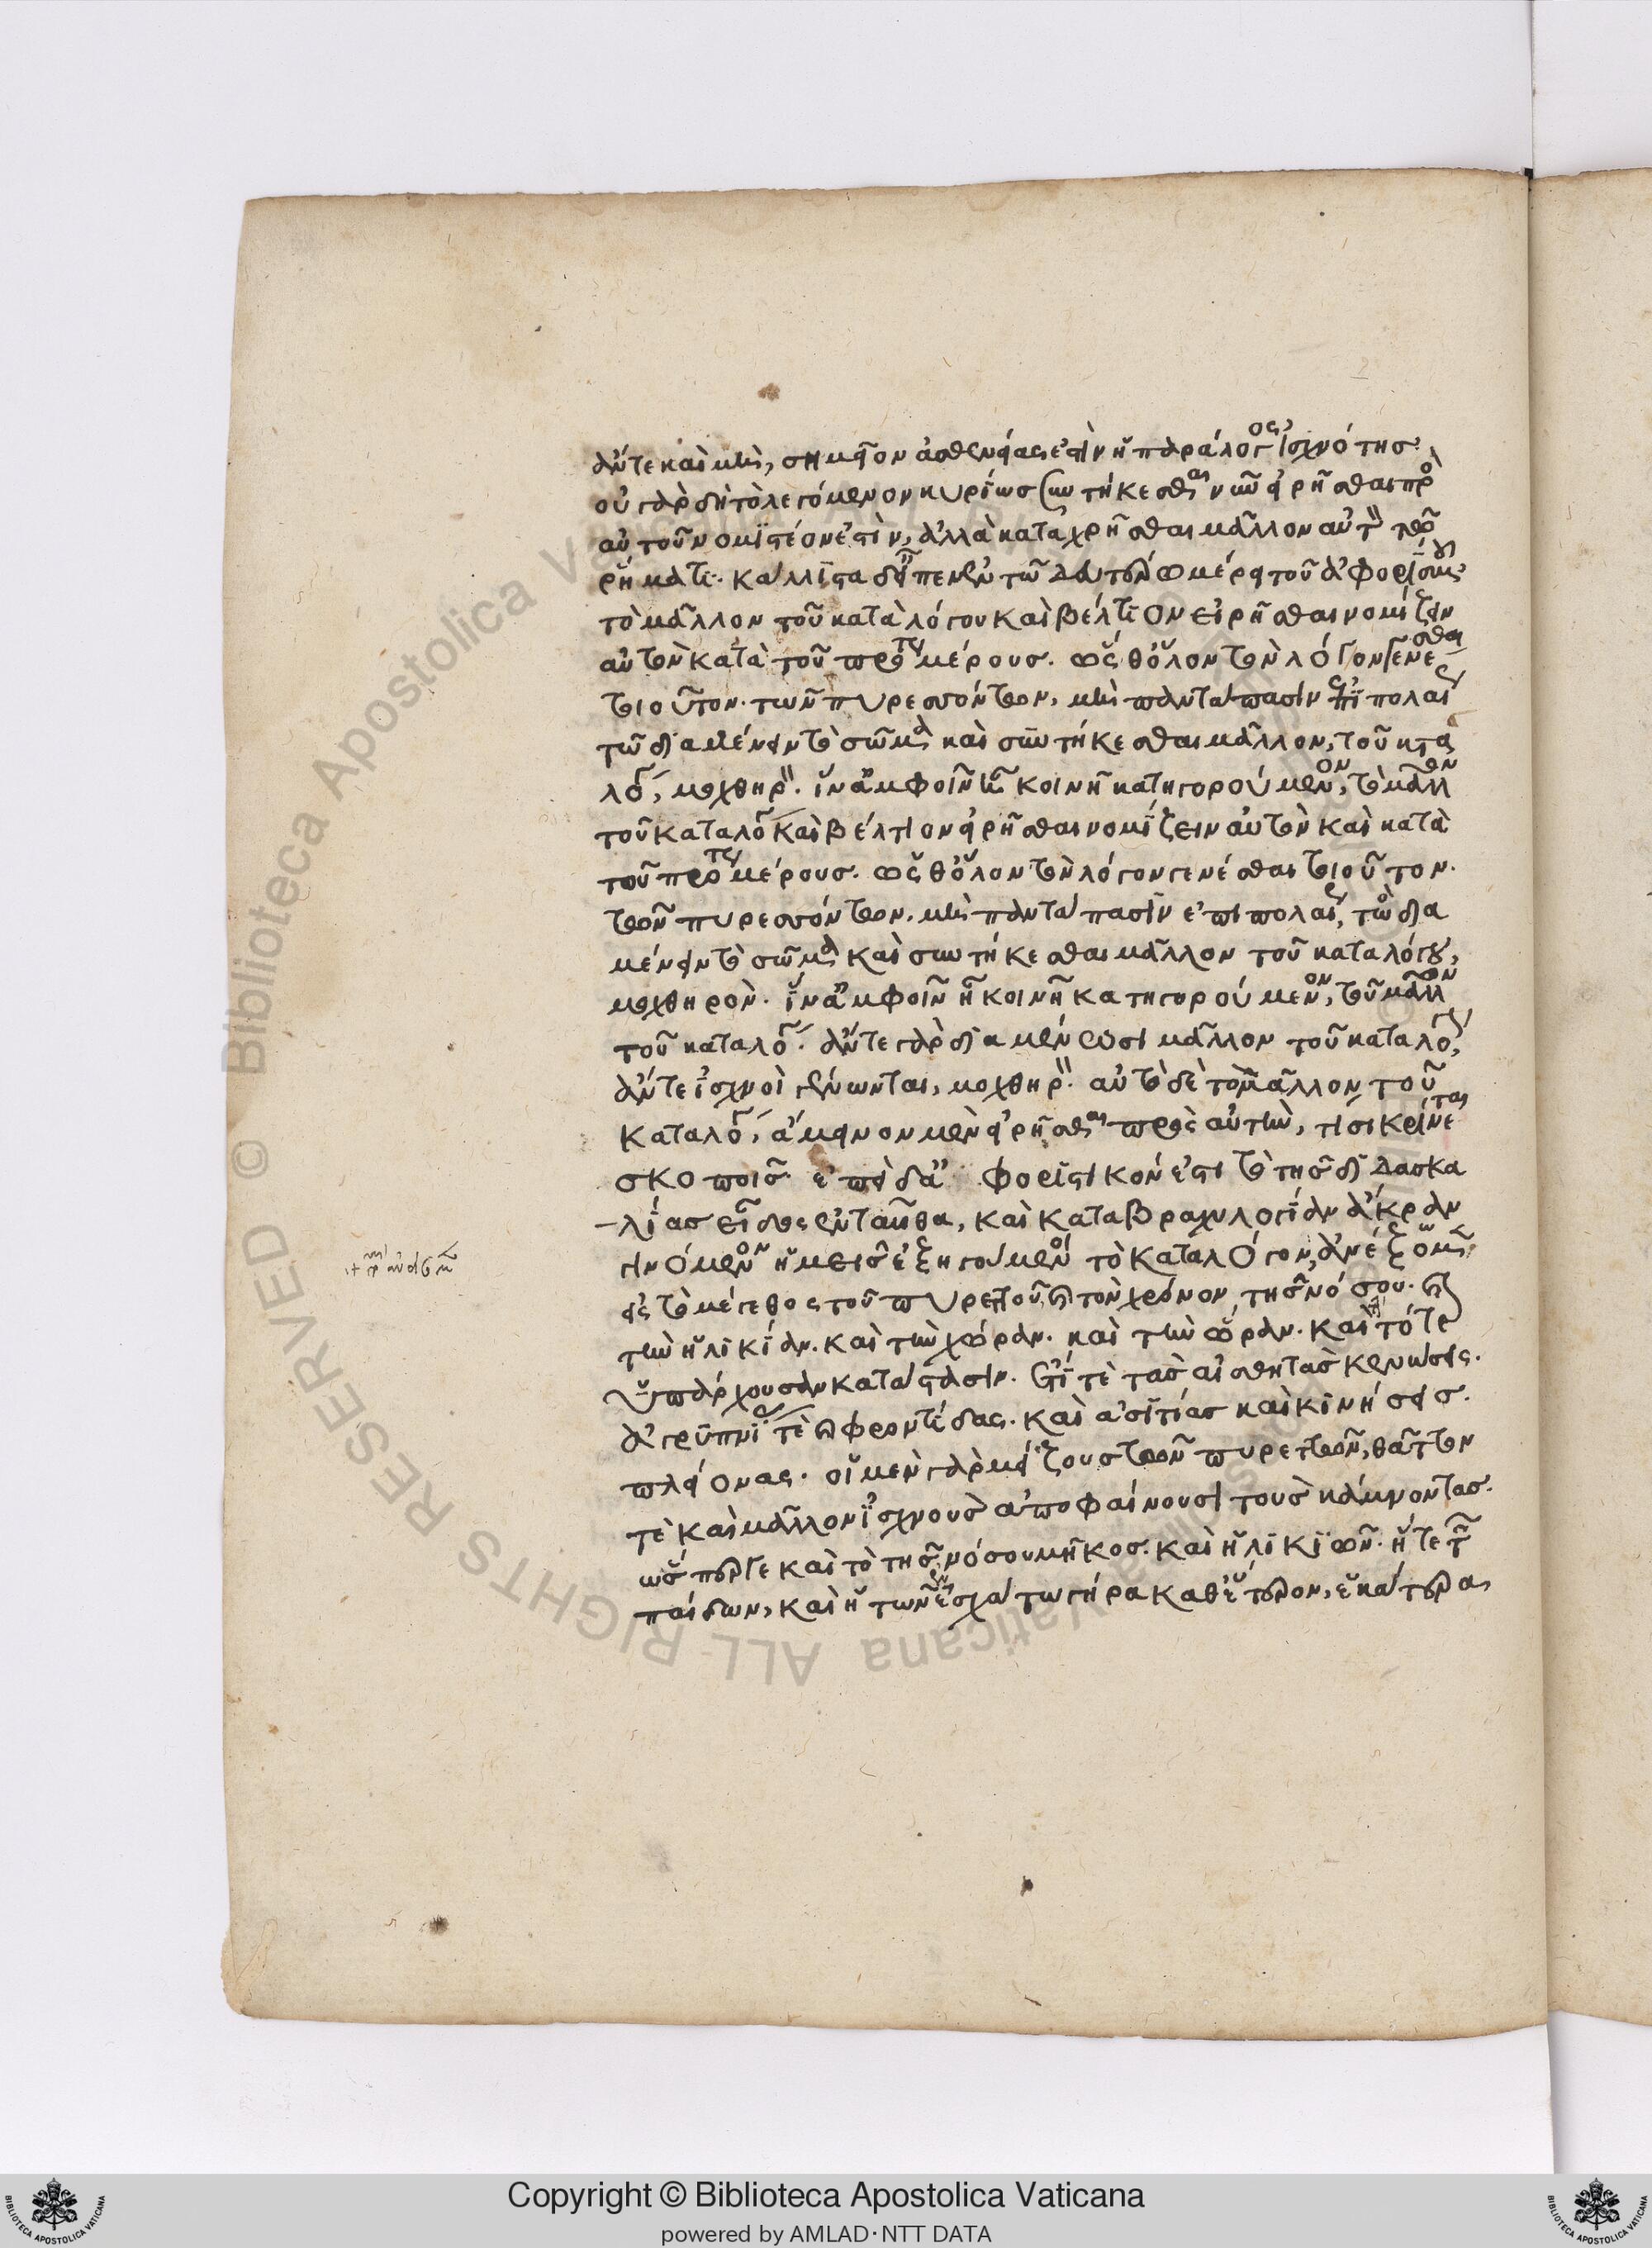 ἄν τε καὶ μὴ, σημεῖον ἀσθενείας ἐστὶν ἡ παράλογος ἰσχνότης.
οὐ γὰρ δὴ τὸ λεγόμενον κυρίως συντήκεσθαι νῦν εἰρῆσθαι πρὸς
αὐτοῦ νομιστέον ἐστὶν, ἀλλὰ καταχρῆσθαι μᾶλλον αὐτὸν τῷ
ῥήματι. κάλλιστα δ' εἴπεν ἐν τῷ δευτέρῳ μέρει τοῦ ἀφορισμοῦ
τὸ μᾶλλον τοῦ κατὰ λόγου καὶ βέλτιον εἰρῆσθαι νομίζειν
αὐτὸν κατὰ τοῦ πρώτου μέρους. ὥσθ' ὅλον τὸν λόγον γενέσθαι
τοιοῦτον. τῶν πυρεσσόντων, μὴ παντάπασιν ἐπιπολαίως
τῷ διαμένειν τὸ σῶμα καὶ συντήκεσθαι μᾶλλον, τοῦ κατὰ
λόγου, μοχθηρὸν. ἵν' ἀμφοῖν ᾖ κοινῇ κατηγορούμενον, τὸ μᾶλλον
τοῦ κατὰ λόγου καὶ βέλτιον εἰρῆσθαι νομίζειν αὐτὸν καὶ κατὰ
τοῦ πρώτου μέρους. ὥσθ' ὅλον τὸν λόγον γενέσθαι τοιοῦτον.
τῶν πυρεσσόντων, μὴ παντάπασιν ἐπιπολαίως, τὸ δια
μένειν τὸ σῶμα καὶ συντήκεσθαι μᾶλλον τοῦ κατὰ λόγου,
μοχθηρὸν. ἵν' ἀμφοῖν ᾖ κοινῇ κατηγορούμενον, τοῦ μᾶλλον
τοῦ κατὰ λόγου. ἄν τε γὰρ διαμένωσι μᾶλλον τοῦ κατὰ λόγου,
ἄν τε ἰσχνοὶ γένωνται, μοχθηρὸν. αὐτὸ δὲ τὸ μᾶλλον τοῦ
κατὰ λόγου, ἄμεινον μὲν εἰρῆσθαι πρὸς αὐτὴν, τίσι κρίνεται
σκοποῖς ἐπεὶ δ' ἀφοριστικόν ἐστι τὸ τῆς διδασκα
λίας εἶδος ἐνταῦθα, καὶ κατὰ βραχυλογίαν ἄκραν
γινόμενον ἡμεῖς ἐξηγούμενοι τὸ κατὰ λόγον, ἀνέξομεν
εἰς τὸ μέγεθος τοῦ πυρετοῦ καὶ τὸν χρόνον τῆς νόσου. καὶ
τὴν ἡλικίαν. καὶ τὴν χώραν. καὶ τὴν ὥραν. καὶ τότε
ὑπάρχουσαν κατάστασιν. ἔτι τὲ τὰς αἰσθητὰς κενώσεις.
ἀγρυπνίας τὲ καὶ φροντίδας. καὶ ἀσιτίας καὶ κινήσεις
πλείονας. οἱ μὲν γὰρ μείζους τῶν πυρετῶν, θᾶττον
τὲ καὶ μᾶλλον ἰσχνοὺς ἀποφαίνουσι τοὺς κάμνοντας.
ὥσπερ γε καὶ τὸ τῆς νόσου μῆκος. καὶ ἡλικιῶν. ἥ τε τῶν
παίδων, καὶ ἡ τῶν ἐσχάτων γήρα καθ' ἕτερον, ἑκάτερα